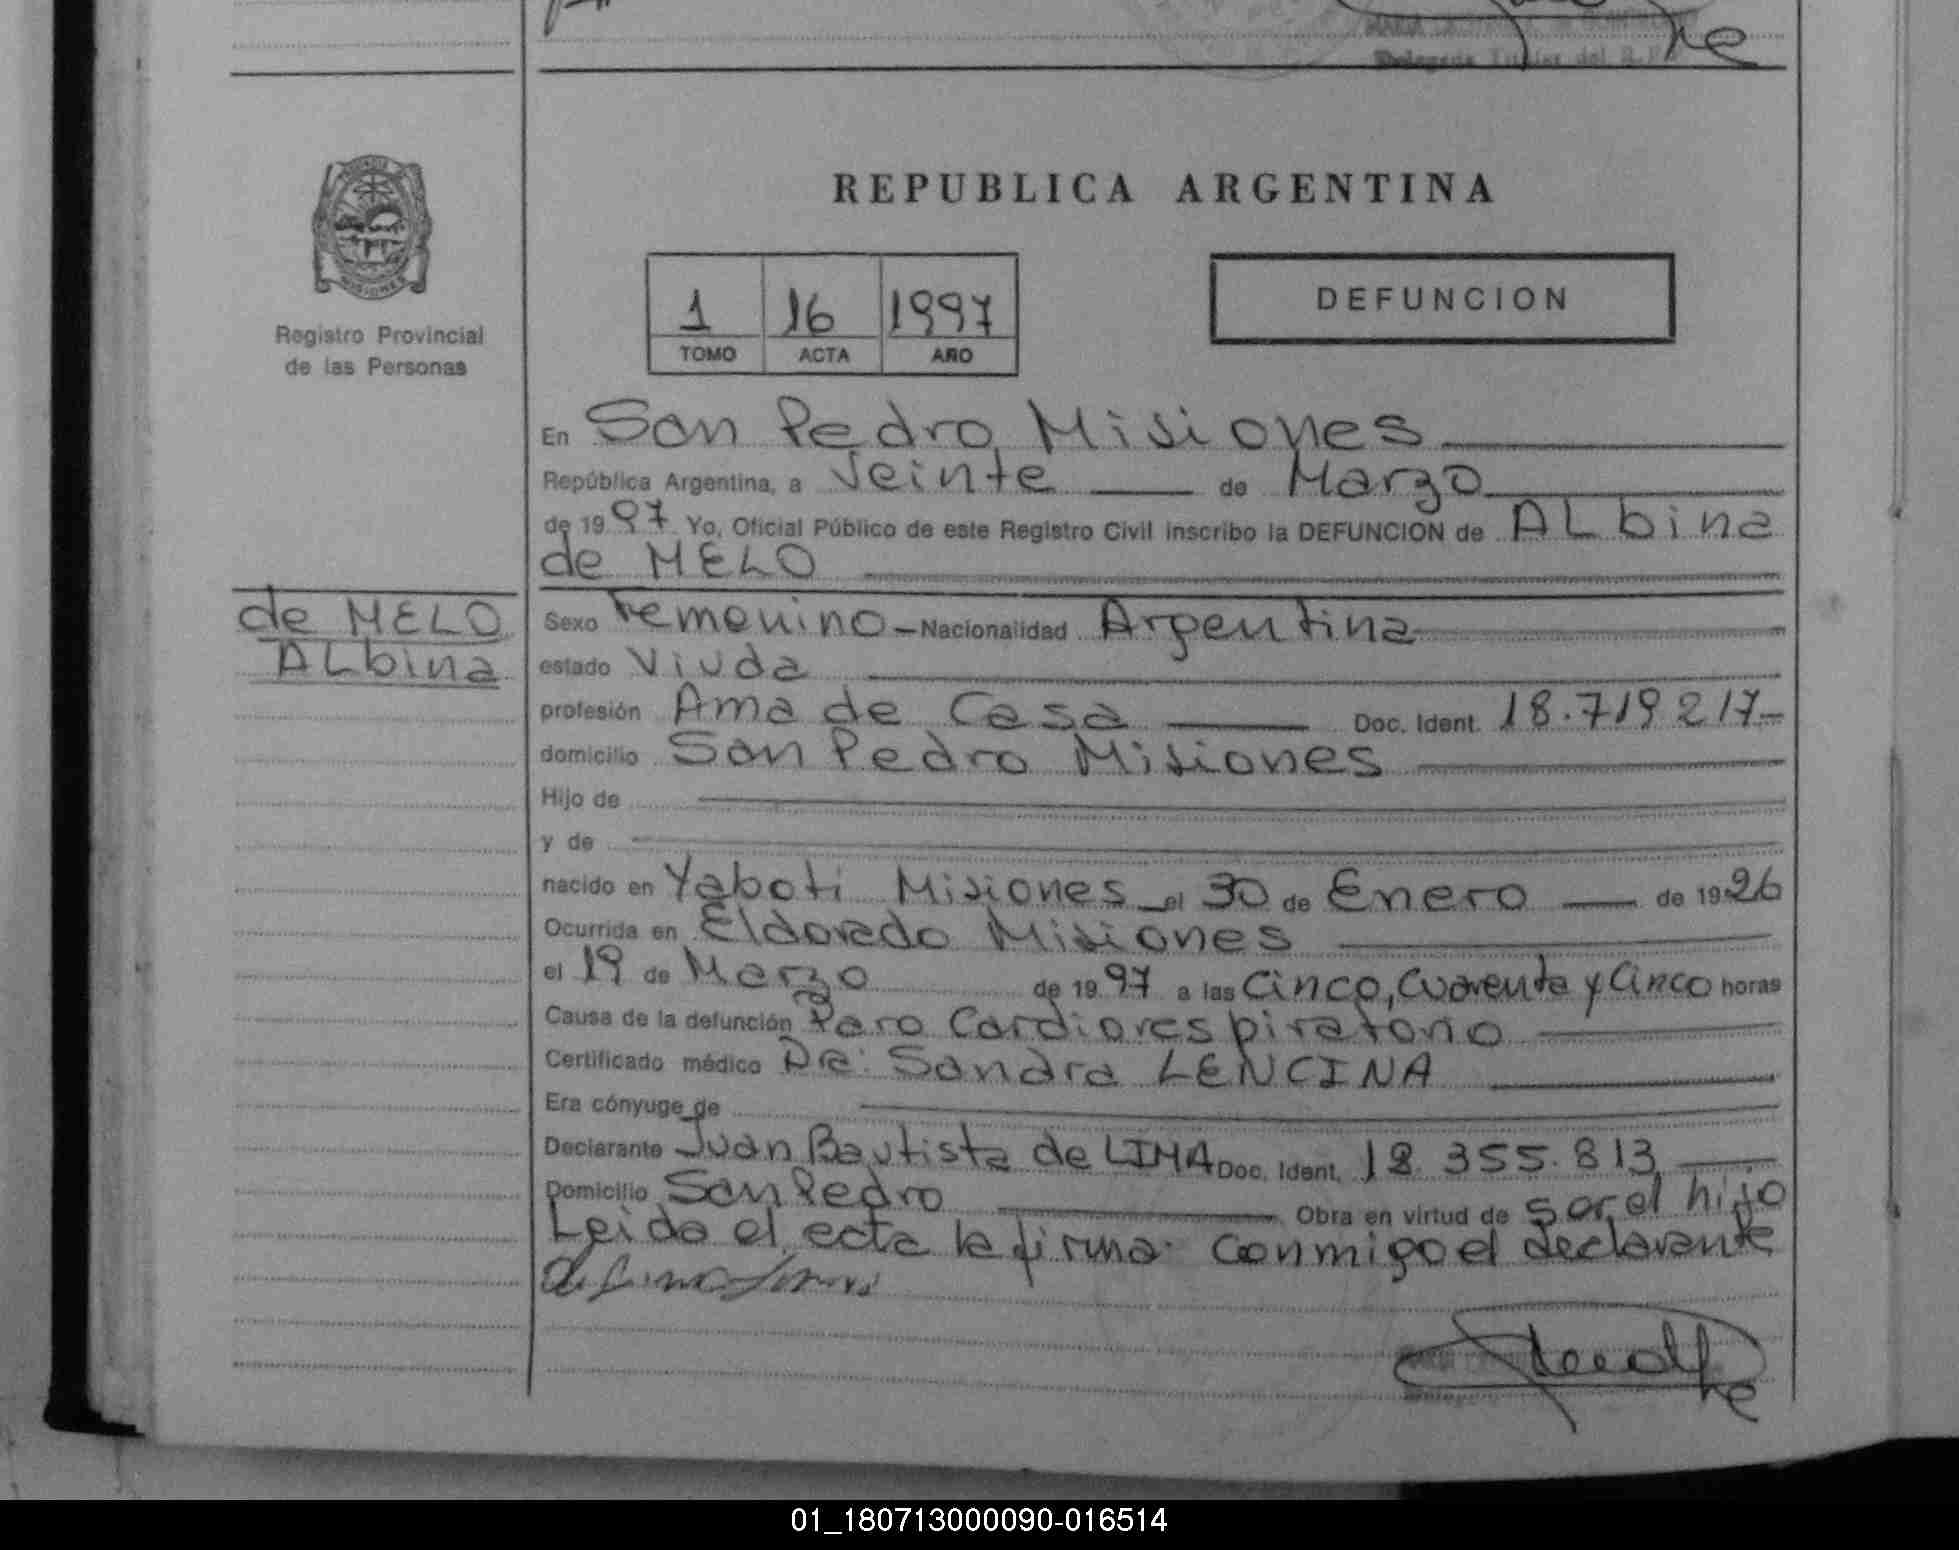 Delegada Titular del R.P.
REPUBLICA ARGENTINA
PROVINCIA DE MISIONES
Registro Provincial
de las Personas
1 16 1997
TOMO ACTA AÑO
DEFUNCION
En San Pedro Misiones
República Argentina, a Veinte de Marzo
de 1997 Yo, Oficial Público de este Registro Civil inscribo la DEFUNCION de ALbina
de MELO
de MELO
ALbina
Sexo Femenino - Nacionalidad Argentina
estado Viuda
profesión Ama de Casa Doc. Ident. 18.719217-
domicilio San Pedro Misiones
Hijo de
y de
nacido en Yaboti Misiones el 30 de Enero de 1926
Ocurrida en Eldorado Misiones
el 19 de Marzo de 1997 a las Cinco, Cuarenta y Cinco horas
Causa de la defunción Paro Cardiorespiratorio
Certificado médico Dra: Sandra LENCINA
Era cónyuge de
Declarante Juan Bautista de LIMA Doc. Ident. 18 355.813
Domicilio San Pedro Obra en virtud de ser el hijo
Leida el acta la firma conmigo el declarante
01_180713000090-016514